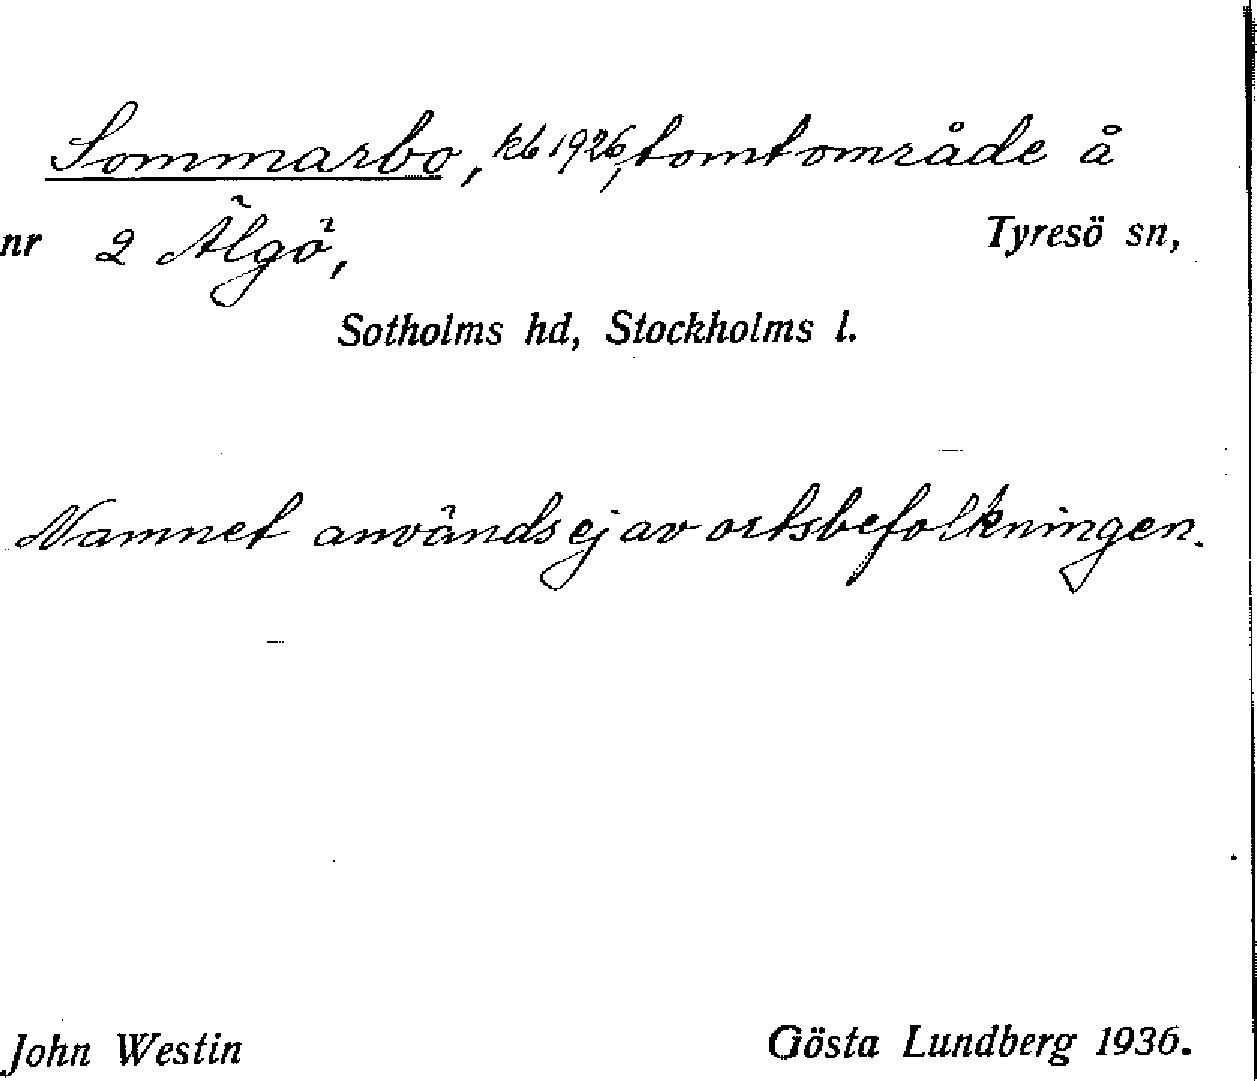 Sommarbo, kb 1926, tomtområde å
nr 2 Älgö, Tyresö sn,
Sotholms hd, Stockholms l.
Namnet används ej av ortsbefolkningen.
John Westin Gösta Lundberg 1936.